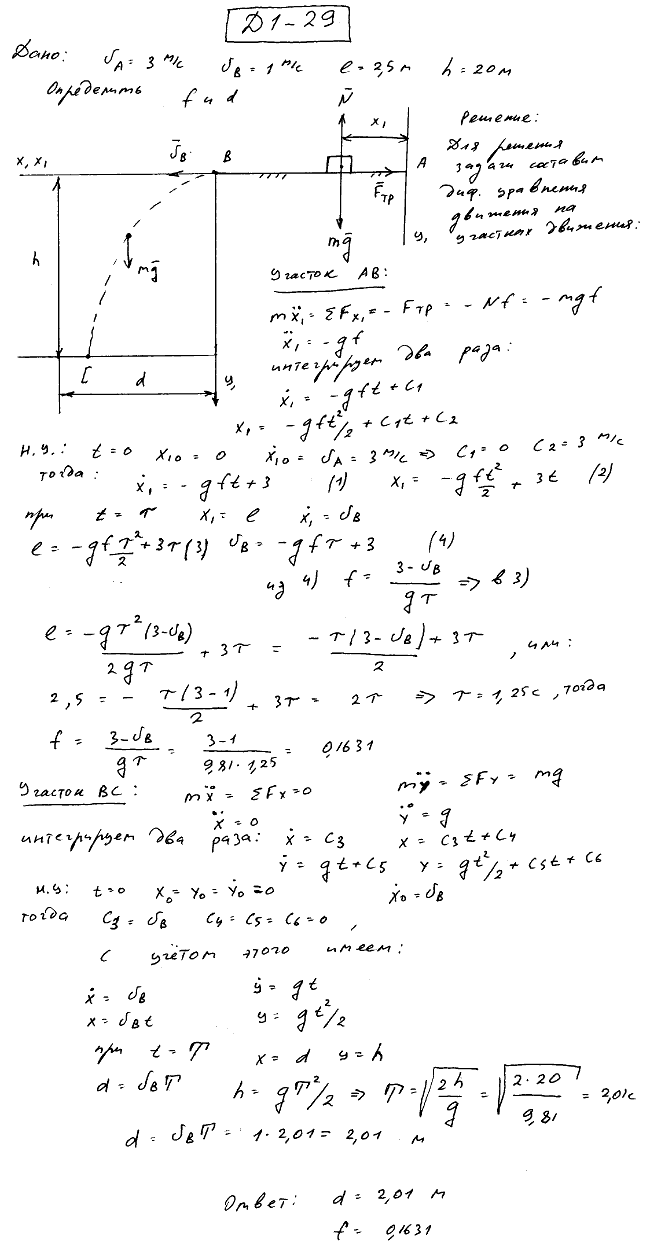 Д1-29
Дано: υA = 3 м/с υB = 1 м/с l = 2,5 м h = 20 м
Определить f и d
N̄
x₁
Решение:
Для решения
задачи составим
диф. уравнения
движения на
участках движения:
x, x₁ ῡB B A
F̄тр
mḡ y₁
h mḡ
C d y,
Участок AB:
mẍ₁ = ΣFx₁ = - Fтр = - Nf = - mgf
ẍ₁ = -gf
интегрируем два раза:
ẋ₁ = -gft + C1
x₁ = -gft²/2 + C1t + C2
н.у.: t=0 x₁₀ = 0 ẋ₁₀ = υA = 3 м/с => C1 = 0 C2 = 3 м/с
тогда: ẋ₁ = - gft + 3 (1) x₁ = -gft²/2 + 3t (2)
при t = τ x₁ = l ẋ₁ = υB
l = -gfτ²/2 + 3τ (3) υB = -gfτ + 3 (4)
из 4) f = (3-υB)/gτ => в 3)
l = -gτ²(3-υB)/2gτ + 3τ = -τ(3-υB)/2 + 3τ , или:
2,5 = - τ(3-1)/2 + 3τ = 2τ => τ = 1,25 с, тогда
f = (3-υB)/gτ = (3-1)/(9,81·1,25) = 0,1631
Участок BC: mẍ = ΣFx = 0 mÿ = ΣFy = mg
ẍ = 0 ÿ = g
интегрируем два раза: ẋ = C3 x = C3t + C4
ẏ = gt + C5 y = gt²/2 + C5t + C6
н.у: t=0 x₀ = y₀ = ẏ₀ = 0 ẋ₀ = υB
тогда C3 = υB C4 = C5 = C6 = 0,
С учётом этого имеем:
ẋ = υB ẏ = gt
x = υBt y = gt²/2
при t = T x = d y = h
d = υBT h = gT²/2 => T = √(2h/g) = √(2·20/9,81) = 2,01с
d = υBT = 1·2,01 = 2,01 м
Ответ: d = 2,01 м
f = 0,1631